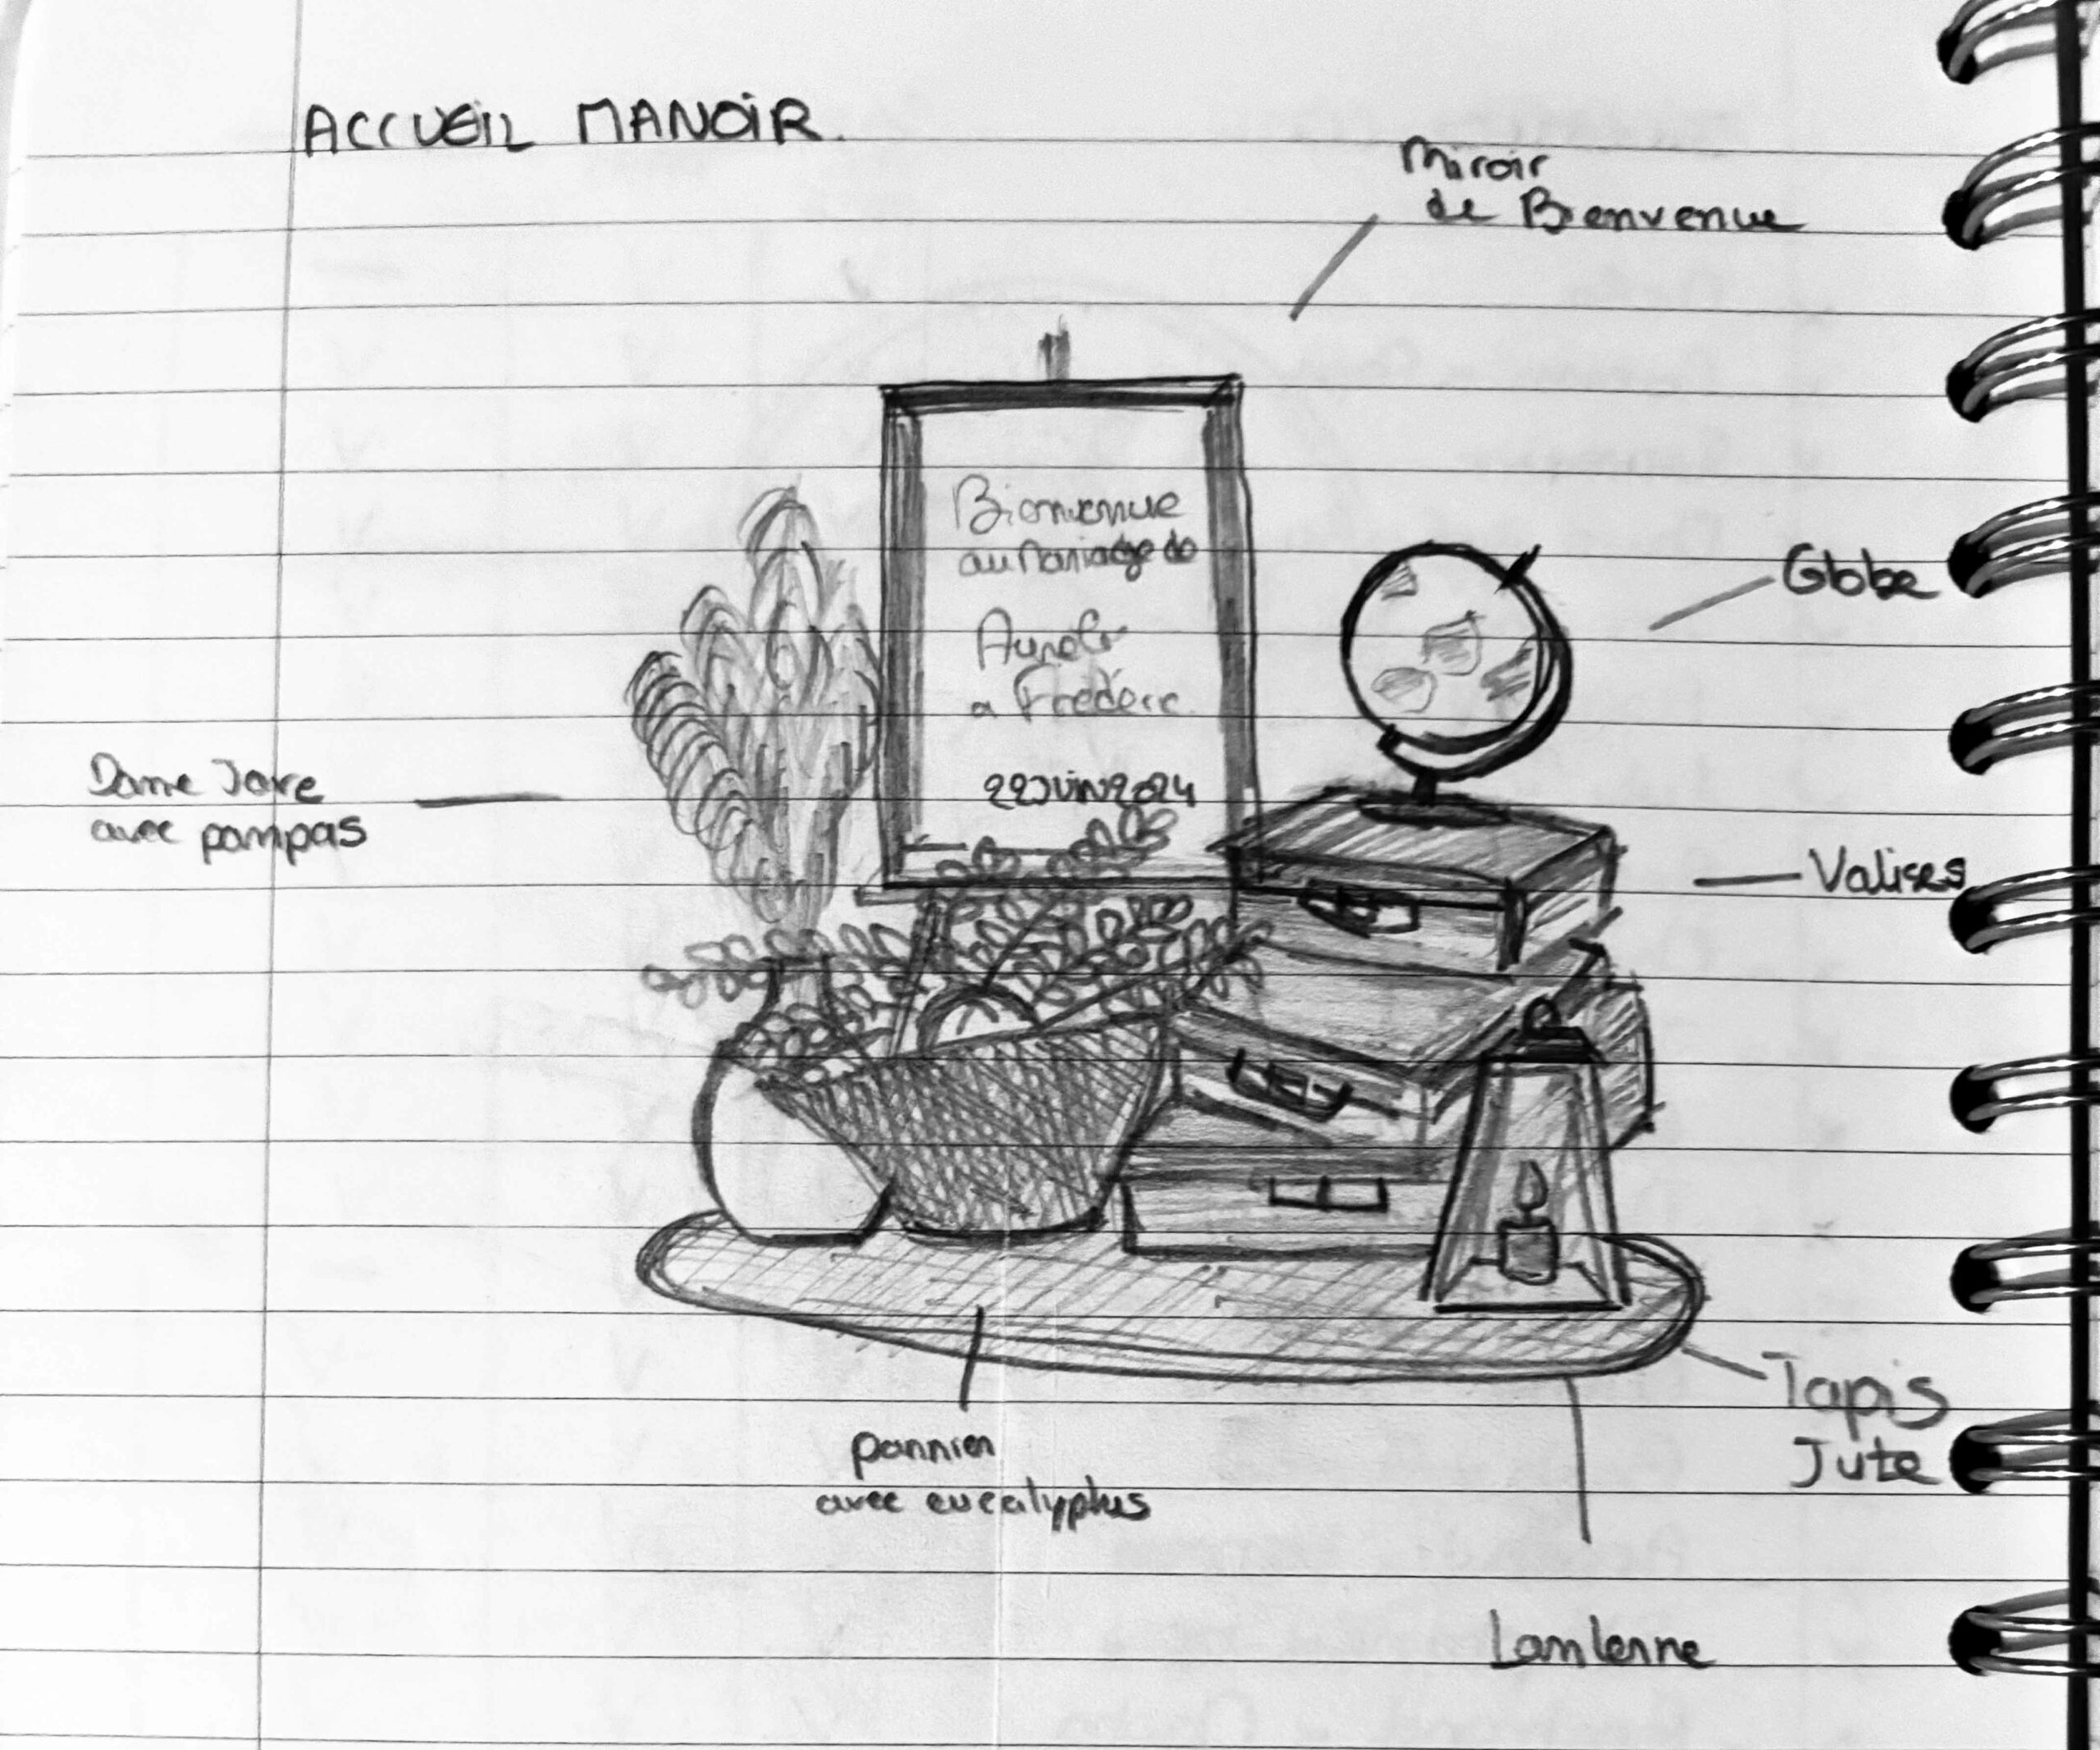 ACCUEIL MANOIR.
Miroir
de Bienvenue
Bienvenue
au Mariage de
Aurelie
& Frédéric
22 JUIN 2024
Globe
Dame Jane
avec pampas
Valises
Tapis
Jute
pannier
avec eucalyptus
Lanterne